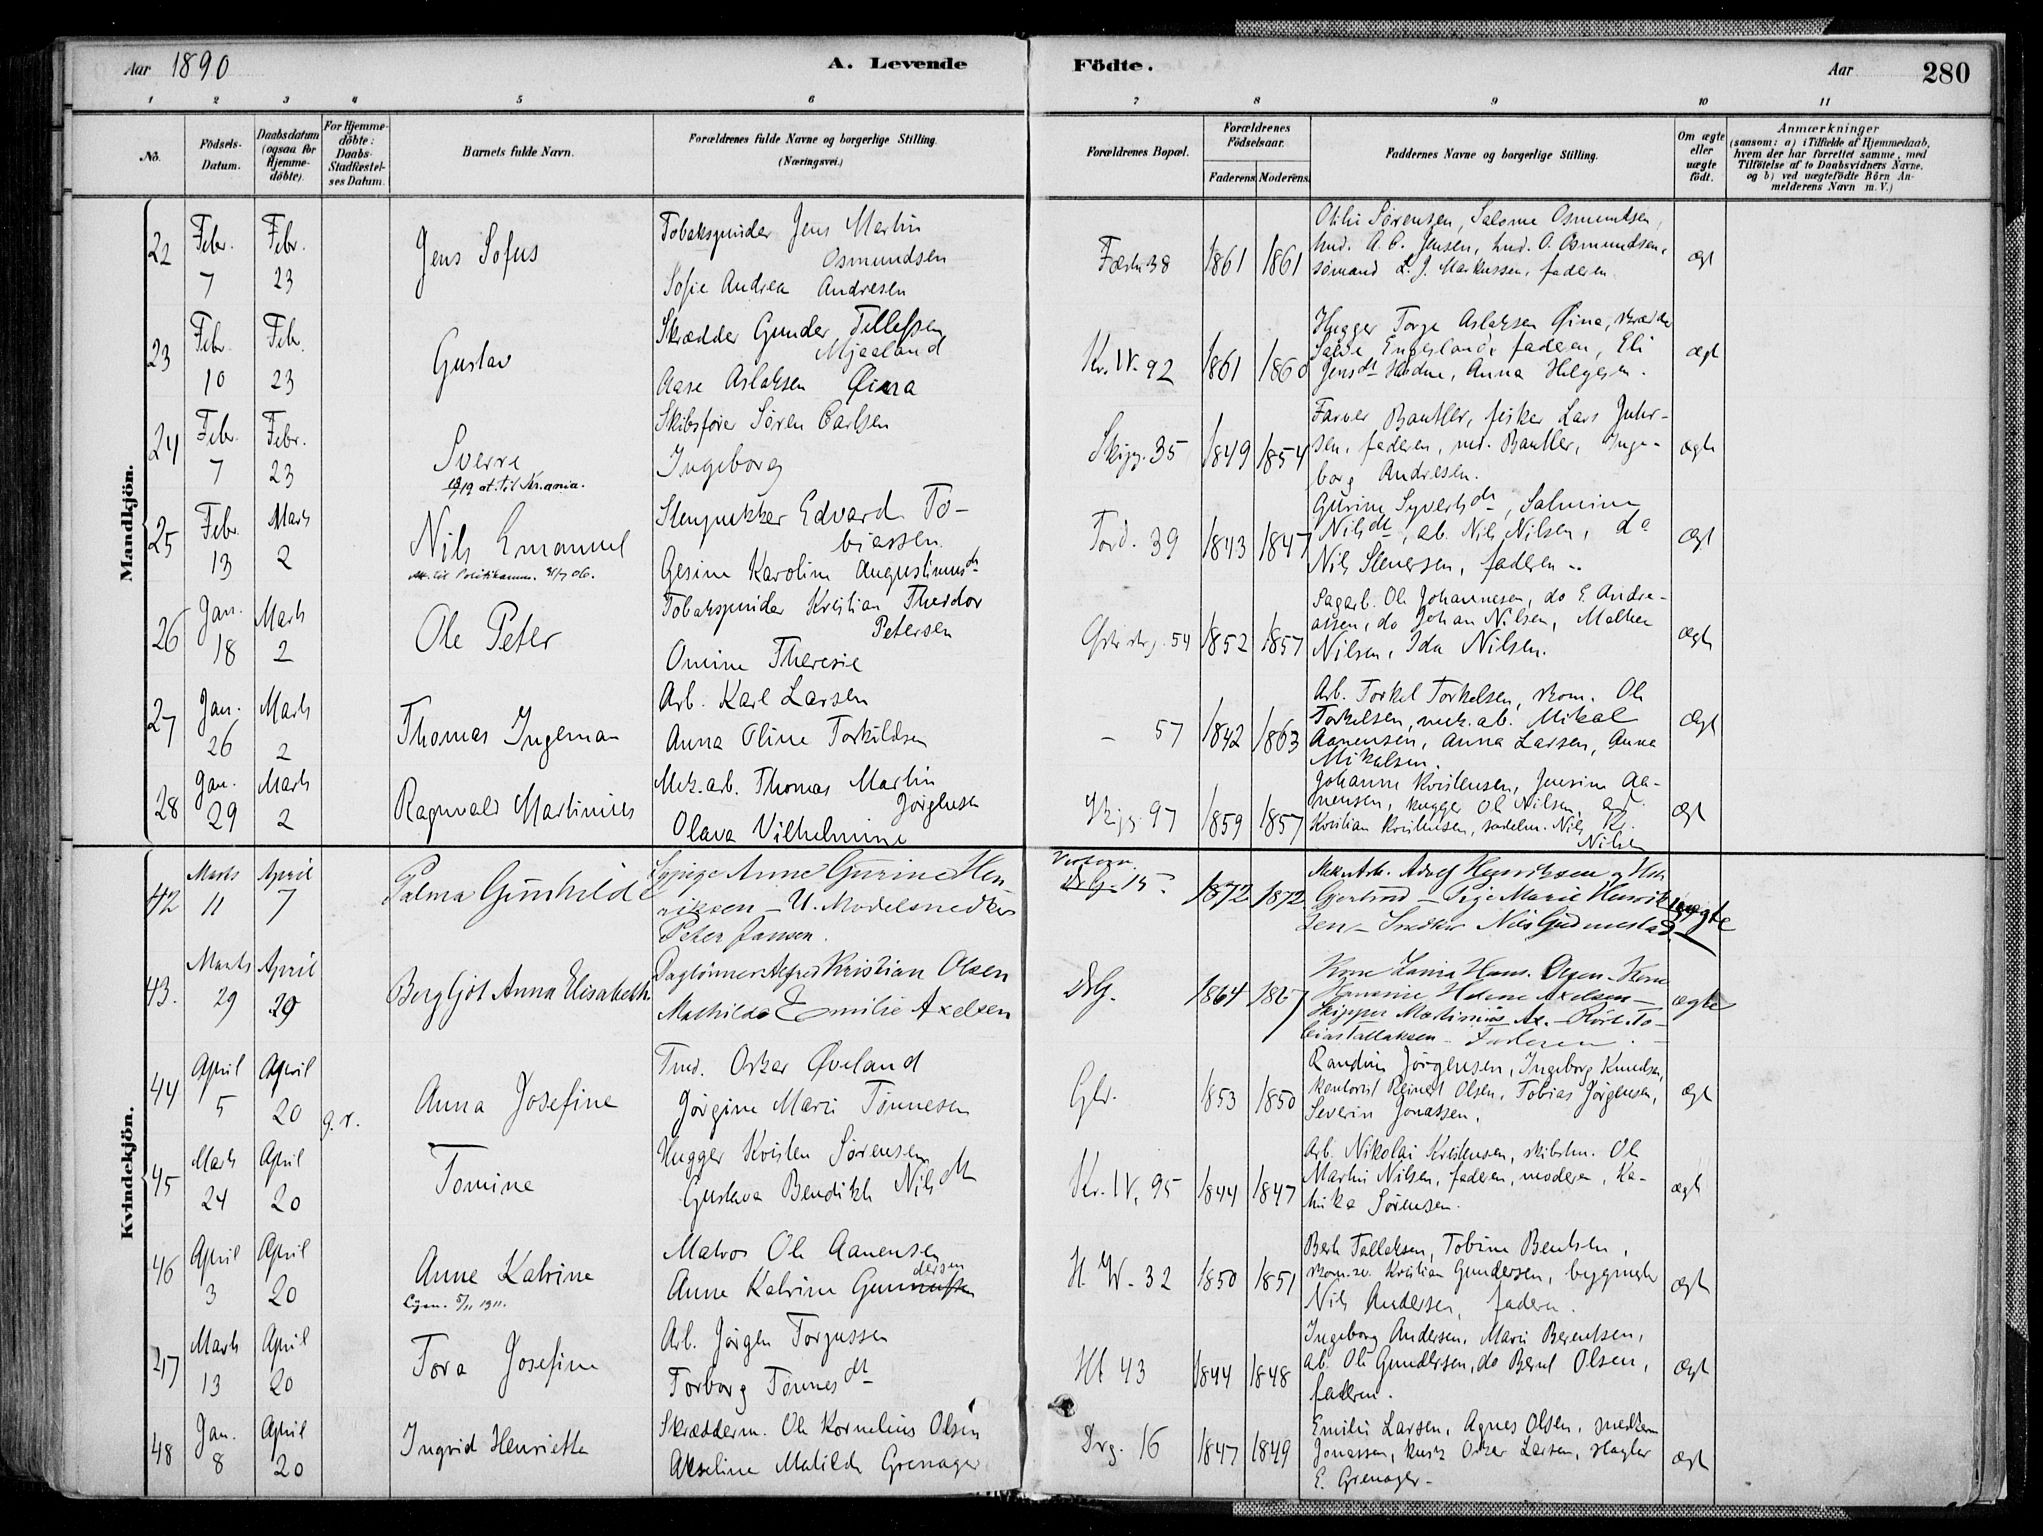 Aar 1890
A. Levende
Födte.
Aar
280
1 2 3 4 5 6 7 8 9 10 11
No.
Födsels-Datum.
Daabsdatum (ogsaa for Hjemme-döbte).
For Hjemme-döbte: Daabs-Stadfæstel-ses Datum.
Barnets fulde Navn.
Forældrenes fulde Navne og borgerlige Stilling.
(Næringsvei.)
Forældrenes Bopæl.
Forældrenes Födselsaar.
Faderens. Moderens.
Faddernes Navne og borgerlige Stilling.
Om ægte eller uægte födt.
Anmærkninger
(saasom: a) i Tilfælde af Hjemmedaab,
hvem der har forrettet samme, med
Tilföielse af to Daabsvidners Navne,
og b) ved uægtefödte Börn An-
melderens Navn m. V.)
Mandkjön.
22 Febr. 7 Febr. 23
Jens Sofus
Tobakspinder Jens Martin
Osmundsen
Sofie Andrea Andresen
38 1861 1861
Otilie Sørensen, Salome Osmundsen,
A. C. Jensen, O. Osmundsen,
sømand L. J. Markussen, faderen
ægt
23 Febr. 10 Feb. 23
Gustav
Skrædder Gunder Tellefsen
Mjaaland
Aase Aslaksen Øina
Kr. IV. 92 1861 1860
Hugger Torge Aslaksen Øina, skrædder
faderen, Eli
Anna Helgesen.
ægt
24 Febr. 7 Febr. 23
Sverre
at. til Kr.ania.
Skibsfører Søren Carlsen
Ingeborg
Skipg. 35 1849 1854
Farver Bantler, fisker Lars Juhr-
sen, faderen, md. Bantler, Inge-
borg Andresen.
ægte
25 Febr. 13 Marts 2
Nils Emanuel
Stenpukker Edvard To-
biassen
Gesine Karoline Augustinusdt
Tord. 39 1843 1847
Gurine Syvertsdt, Salmine
Nilsdt, ab. Nils Nilsen, do
Nils Stenersen, faderen
ægt
26 Jan. 18 Marts 2
Ole Peter
Tobakspinder Kristian Theodor
Petersen
Omine Theresie
54 1852 1857
Sagarb. Ole Johannesen, do E. Andre-
assen, do Johan Nilsen, Mathea
Nilsen, Ida Nilsen.
ægte
27 Jan. 26 Marts 2
Thomas Ingeman
Arb. Karl Larsen
Anna Oline Torkildsen
– 57 1842 1863
Arb. Torkel Torkelsen, skom. Ole
Torkelsen, mek. ab. Mikal
Aanensen, Anna Larsen, Anna
Mikalsen.
ægt
28 Jan. 29 Marts 2
Ragnvald Martinius
Mek. arb. Thomas Martin
Jørgensen
Olava Vilhelmine
97 1859 1857
Johanne Kristensen, Jensine Aa-
nensen, hugger Ole Nilsen, arb.
Kristian Kristensen, sadelm. Nils Kr.
Nilsen
ægt
Kvindekjön.
42 Marts 11 April 7
Palma Gunhilde
Sypige Anne Gurine Hen-
riksen – U. Modelsnedker
Peter Jansen.
15. 1872 1872
Mek. Arb. Adolf Henriksen
Gjertrud – Pige Marie Henrik
sen – Snedker Nils Gudmestad
uægte
43. Marts 29 April 20
Bergljot Anna Elisabeth.
Daglönner Alfred Kristian Olsen
Mathilde Emilie Axelsen
DrG. 1864 1867
Kone Hans. Olsen – Kone
Helene Axelsen –
Skipper Martinius Ax. – To-
bias Tallaksen – Faderen.
ægte
44 April 5 April 20
g. v.
Anna Josefine
Tmd. Oskar Øveland
Jørgine Marie Tønnesen
Glv. 1853 1850
Randine Jørgensen, Ingeborg Knudsen,
kontorist Reinert Olsen, Tobias Jørgensen,
Severin Jonassen.
ægt
45 Marts 24 April 20
Tomine
Hugger Kristen Sørensen
Gustava Bendikte Nilsdt
Kr. IV, 95 1844 1847
Arb. Nikolai Kristensen, skibstm. Ole
Martin Nilsen, faderen, moderen, Ka-
thinka Sørensen.
ægt
46 April 3 April 20
Anne Katrine
5/11 1911.
Matros Ole Aanensen
dersen
Anne Katrine Gun
H. W. 32 1850 1851
Berte Tallaksen, Tobine Bentsen,
Kristian Gundersen, bygmester
Nils Andersen, faderen.
ægt
47 Marts 13 April 20
Tora Josefine
Arb. Jörgen Torgussen
Torborg Tönnesdt
43 1844 1848
Ingeborg Andersen, Marie Berentsen,
ab. Ole Gundersen, do Bernt Olsen,
faderen.
ægt
48 Jan. 8 April 20
Ingrid Henriette
Skrædderm. Ole Kornelius Olsen
Akseline Matilde Grenager
Drg. 16 1847 1849
Emilie Larsen, Agnes Olsen, snedkerm
Jonassen, kusk Oskar Larsen, slagter
E. Grenager –
ægt